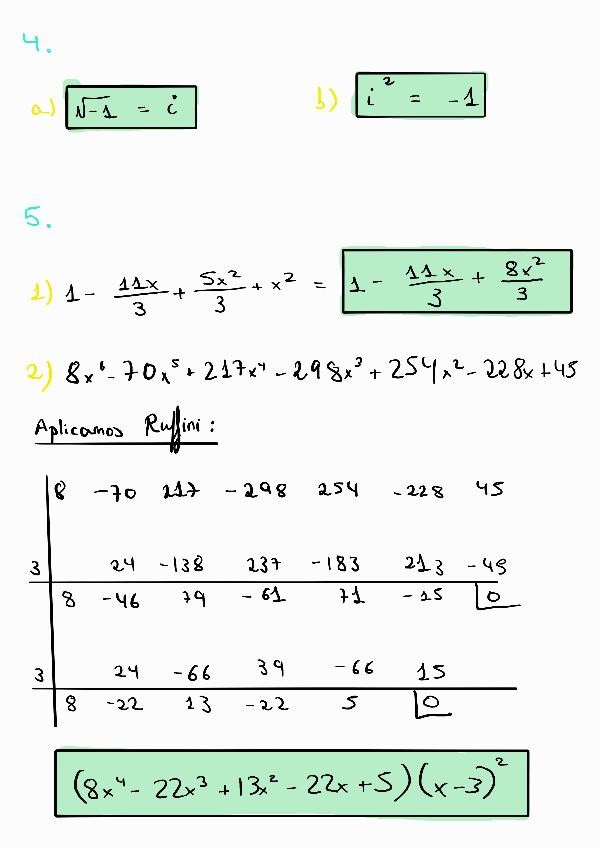 4.
a) √-1 = i b) i² = -1
5.
1) 1 - 11x/3 + 5x²/3 + x² = 1 - 11x/3 + 8x²/3
2) 8x⁶ - 70x⁵ + 217x⁴ - 298x³ + 254x² - 228x + 45
Aplicamos Ruffini:
8 -70 217 -298 254 -228 45
3 24 -138 237 -183 213 -45
8 -46 79 -61 71 -15 0
3 24 -66 39 -66 15
8 -22 13 -22 5 0
(8x⁴ - 22x³ + 13x² - 22x + 5)(x - 3)²